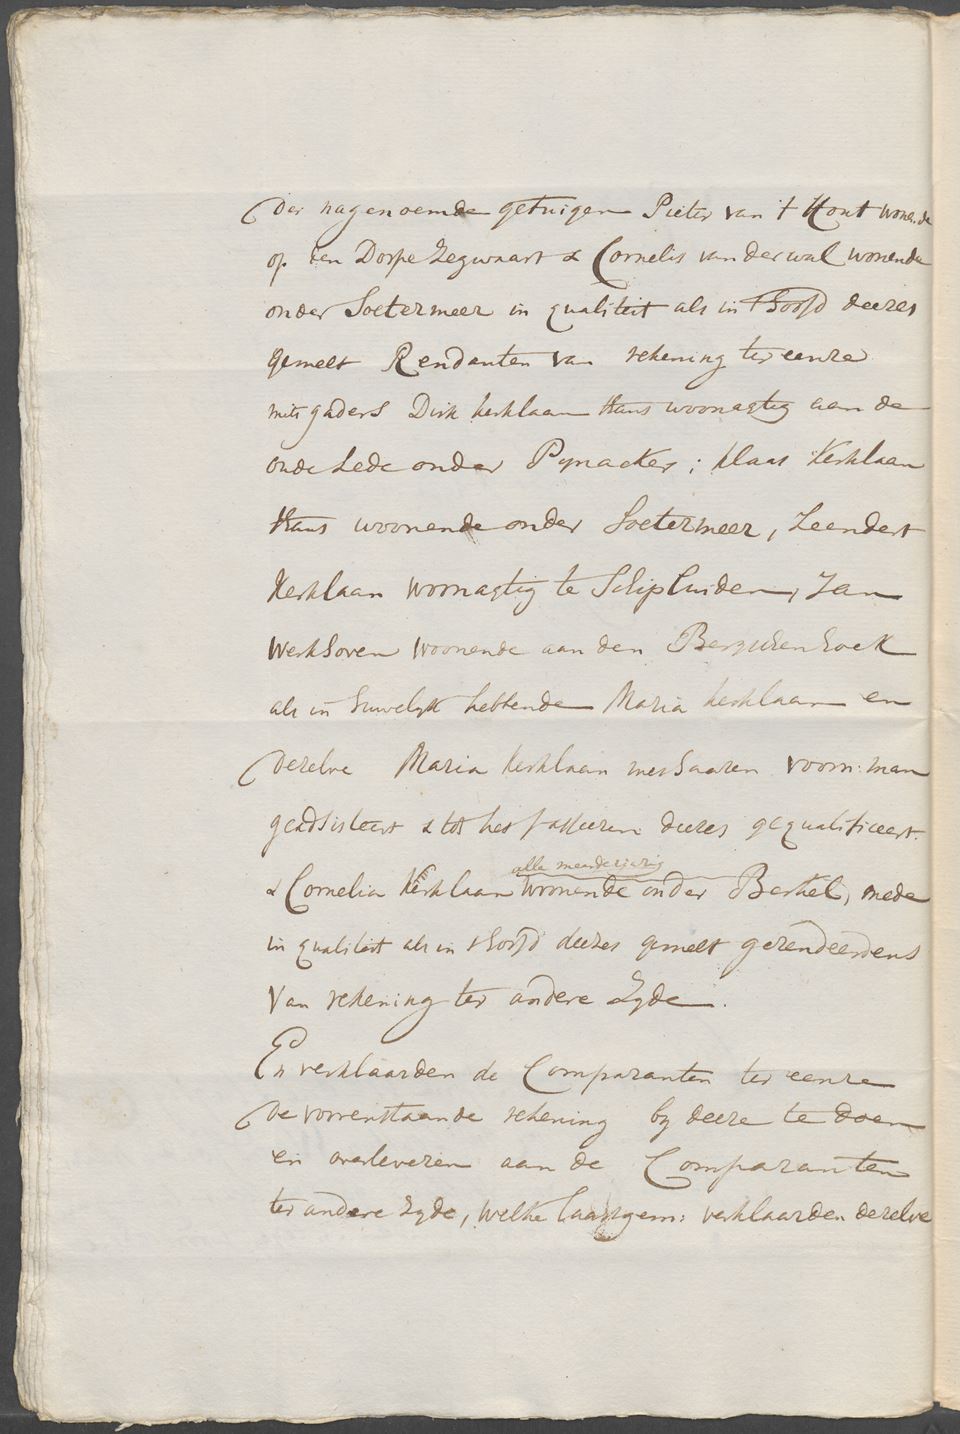 der nagenoemde getuigen Pieter van 't Hout wonende
op den Dorpe Zegwaart & Cornelis van der wal wonende
onder Soetermeer in qualiteit als in 't Hoofd deezes
gemelt Rendanten van rekening ter eenre
mitsgaders Dirk Kerklaan Hans woonagtig aan de
oude Lede onder Pynacker; Klaas Kerklaan
Hans woonende onder Soetermeer, Leendert
Kerklaan woonagtig te Schipluiden, Jan
Werkhoven woonende aan den Bergschenhoek
als in huwelyk hebbende Maria Kerklaan en
dezelve Maria Kerklaan met haaren voorn: man
geadsisteert & tot het passeeren deezes gequalificeert.
alle meerderjarig
& Cornelia Kerklaan wonende onder Berkel, mede
in qualiteit als in 't hoofd deezes gemelt gerendeerdens
van rekening ter andere Zyde.
En verklaarden de Comparanten ter eenre
de vorenstaande rekening by deeze te doen
en overleveren aan de Comparanten
ter andere Zyde, welke laatstgem: verklaarden dezelve